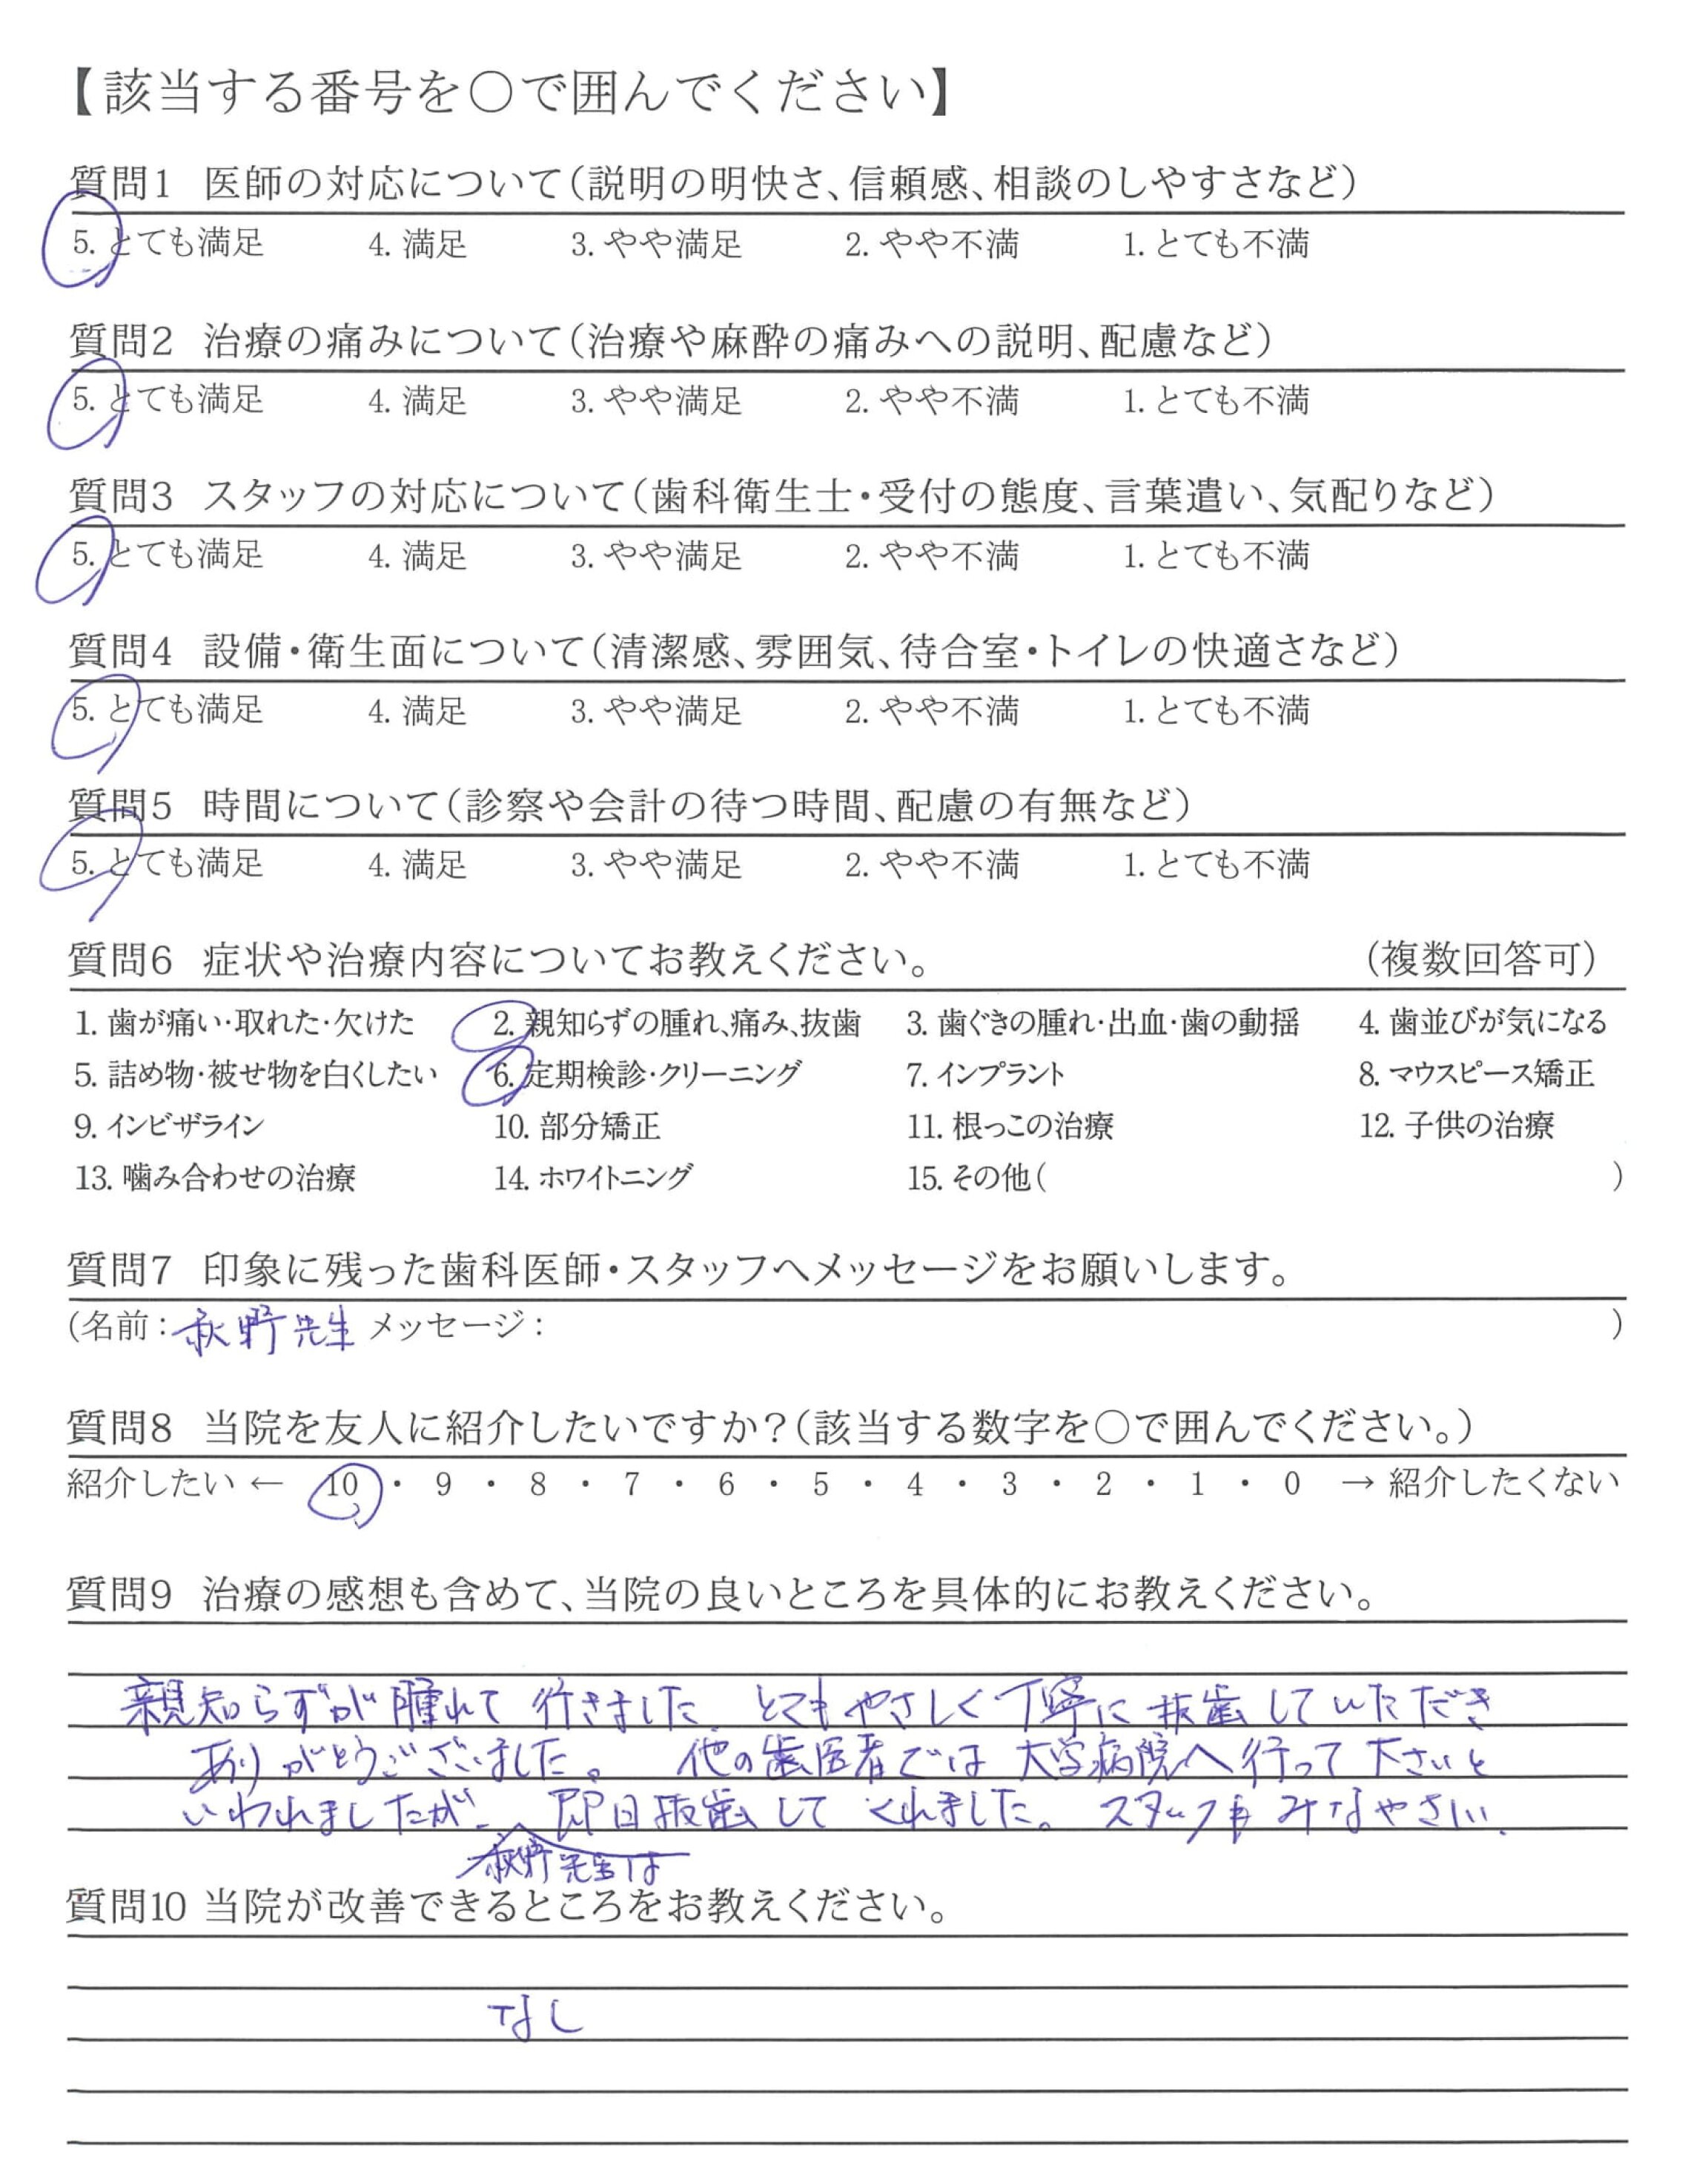 【該当する番号を〇で囲んでください】
質問1 医師の対応について(説明の明快さ、信頼感、相談のしやすさなど)
5. とても満足 4. 満足 3. やや満足 2. やや不満 1. とても不満
質問2 治療の痛みについて(治療や麻酔の痛みへの説明、配慮など)
5. とても満足 4. 満足 3. やや満足 2. やや不満 1. とても不満
質問3 スタッフの対応について(歯科衛生士・受付の態度、言葉遣い、気配りなど)
5. とても満足 4. 満足 3. やや満足 2. やや不満 1. とても不満
質問4 設備・衛生面について(清潔感、雰囲気、待合室・トイレの快適さなど)
5. とても満足 4. 満足 3. やや満足 2. やや不満 1. とても不満
質問5 時間について(診察や会計の待つ時間、配慮の有無など)
5. とても満足 4. 満足 3. やや満足 2. やや不満 1. とても不満
質問6 症状や治療内容についてお教えください。 (複数回答可)
1. 歯が痛い・取れた・欠けた 2. 親知らずの腫れ、痛み、抜歯 3. 歯ぐきの腫れ・出血・歯の動揺 4. 歯並びが気になる
5. 詰め物・被せ物を白くしたい 6. 定期検診・クリーニング 7. インプラント 8. マウスピース矯正
9. インビザライン 10. 部分矯正 11. 根っこの治療 12. 子供の治療
13. 噛み合わせの治療 14. ホワイトニング 15. その他( )
質問7 印象に残った歯科医師・スタッフへメッセージをお願いします。
(名前：秋野先生 メッセージ： )
質問8 当院を友人に紹介したいですか？(該当する数字を〇で囲んでください。)
紹介したい ← 10 ・ 9 ・ 8 ・ 7 ・ 6 ・ 5 ・ 4 ・ 3 ・ 2 ・ 1 ・ 0 → 紹介したくない
質問9 治療の感想も含めて、当院の良いところを具体的にお教えください。
親知らずが腫れて行きました。とてもやさしく丁寧に抜歯していただき
ありがとうございました。 他の歯医者では大学病院へ行って下さいと
いわれましたが、即日抜歯してくれました。スタッフもみなやさしい。
秋野先生は
質問10 当院が改善できるところをお教えください。
なし